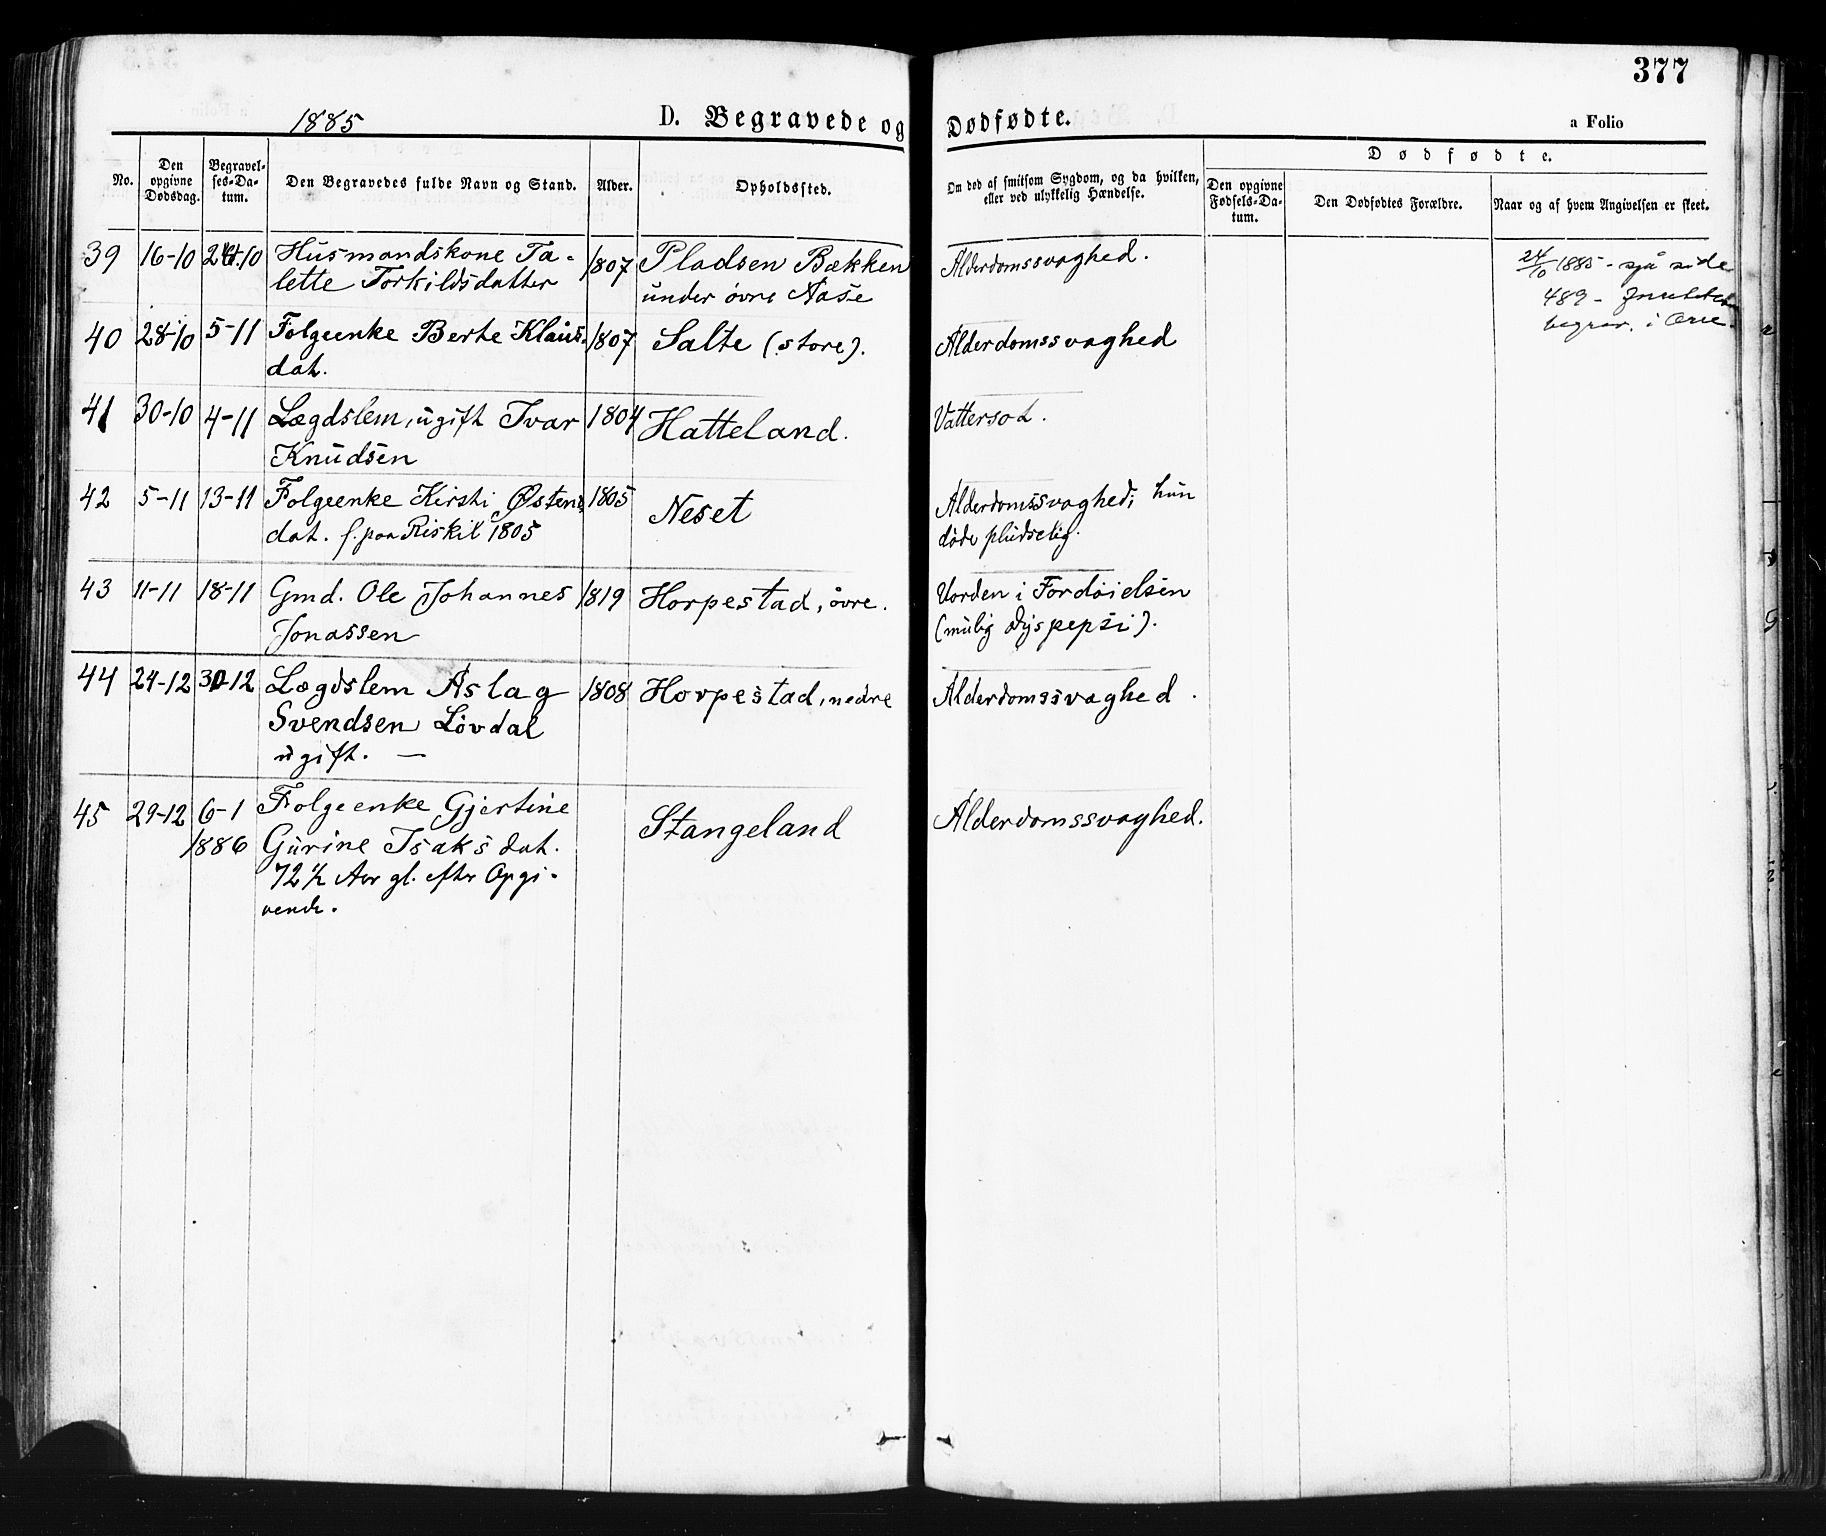 377
1885 D. Begravede og Dødfødte. a Folio
No.
Den opgivne Dødsdag.
Begravelses-Datum.
Den Begravedes fulde Navn og Stand.
Alder.
Opholdssted.
Om død af smitsom Sygdom, og da hvilken, eller ved ulykkelig Hændelse.
Dødfødte.
Den opgivne Fødsels-Datum.
Den Dødfødtes Forældre.
Naar og af hvem Angivelsen er skeet.
39 16-10 24-10 Husmandskone Ta- 1807 Pladsen Bækken Alderdomssvaghed. 24/10 1885 - sjå side
lette Torkildsdatter under øvre Nase 489 -
begrav. i Orre.
40 28-10 5-11 Folgeenke Berte Klaus- 1807 Salte (store). Alderdomssvaghed
dat.
41 30-10 4-11 Lægdslem, ugift Ivar 1804 Hatteland. Vattersot.
Knudsen
42 5-11 13-11 Folgeenke Kirsti Østens 1805 Neset Alderdomssvaghed; hun
dat. f. paa Riskil 1805 døde pludselig.
43 11-11 18-11 Gmd. Ole Johannes 1819 Horpestad, øvre. Uorden i Fordøielsen
Jonassen (mulig Dyspepsi).
44 24-12 30-12 Lægdslem Aslag 1808 Horpestad, nedre Alderdomssvaghed.
Svendsen Løvdal
ugift. —
45 29-12 6-1 Folgeenke Gjertine Stangeland Alderdomssvaghed.
1886 Gurine Isaksdat.
72 1/2 Aar gl. efter Opgi-
vende.